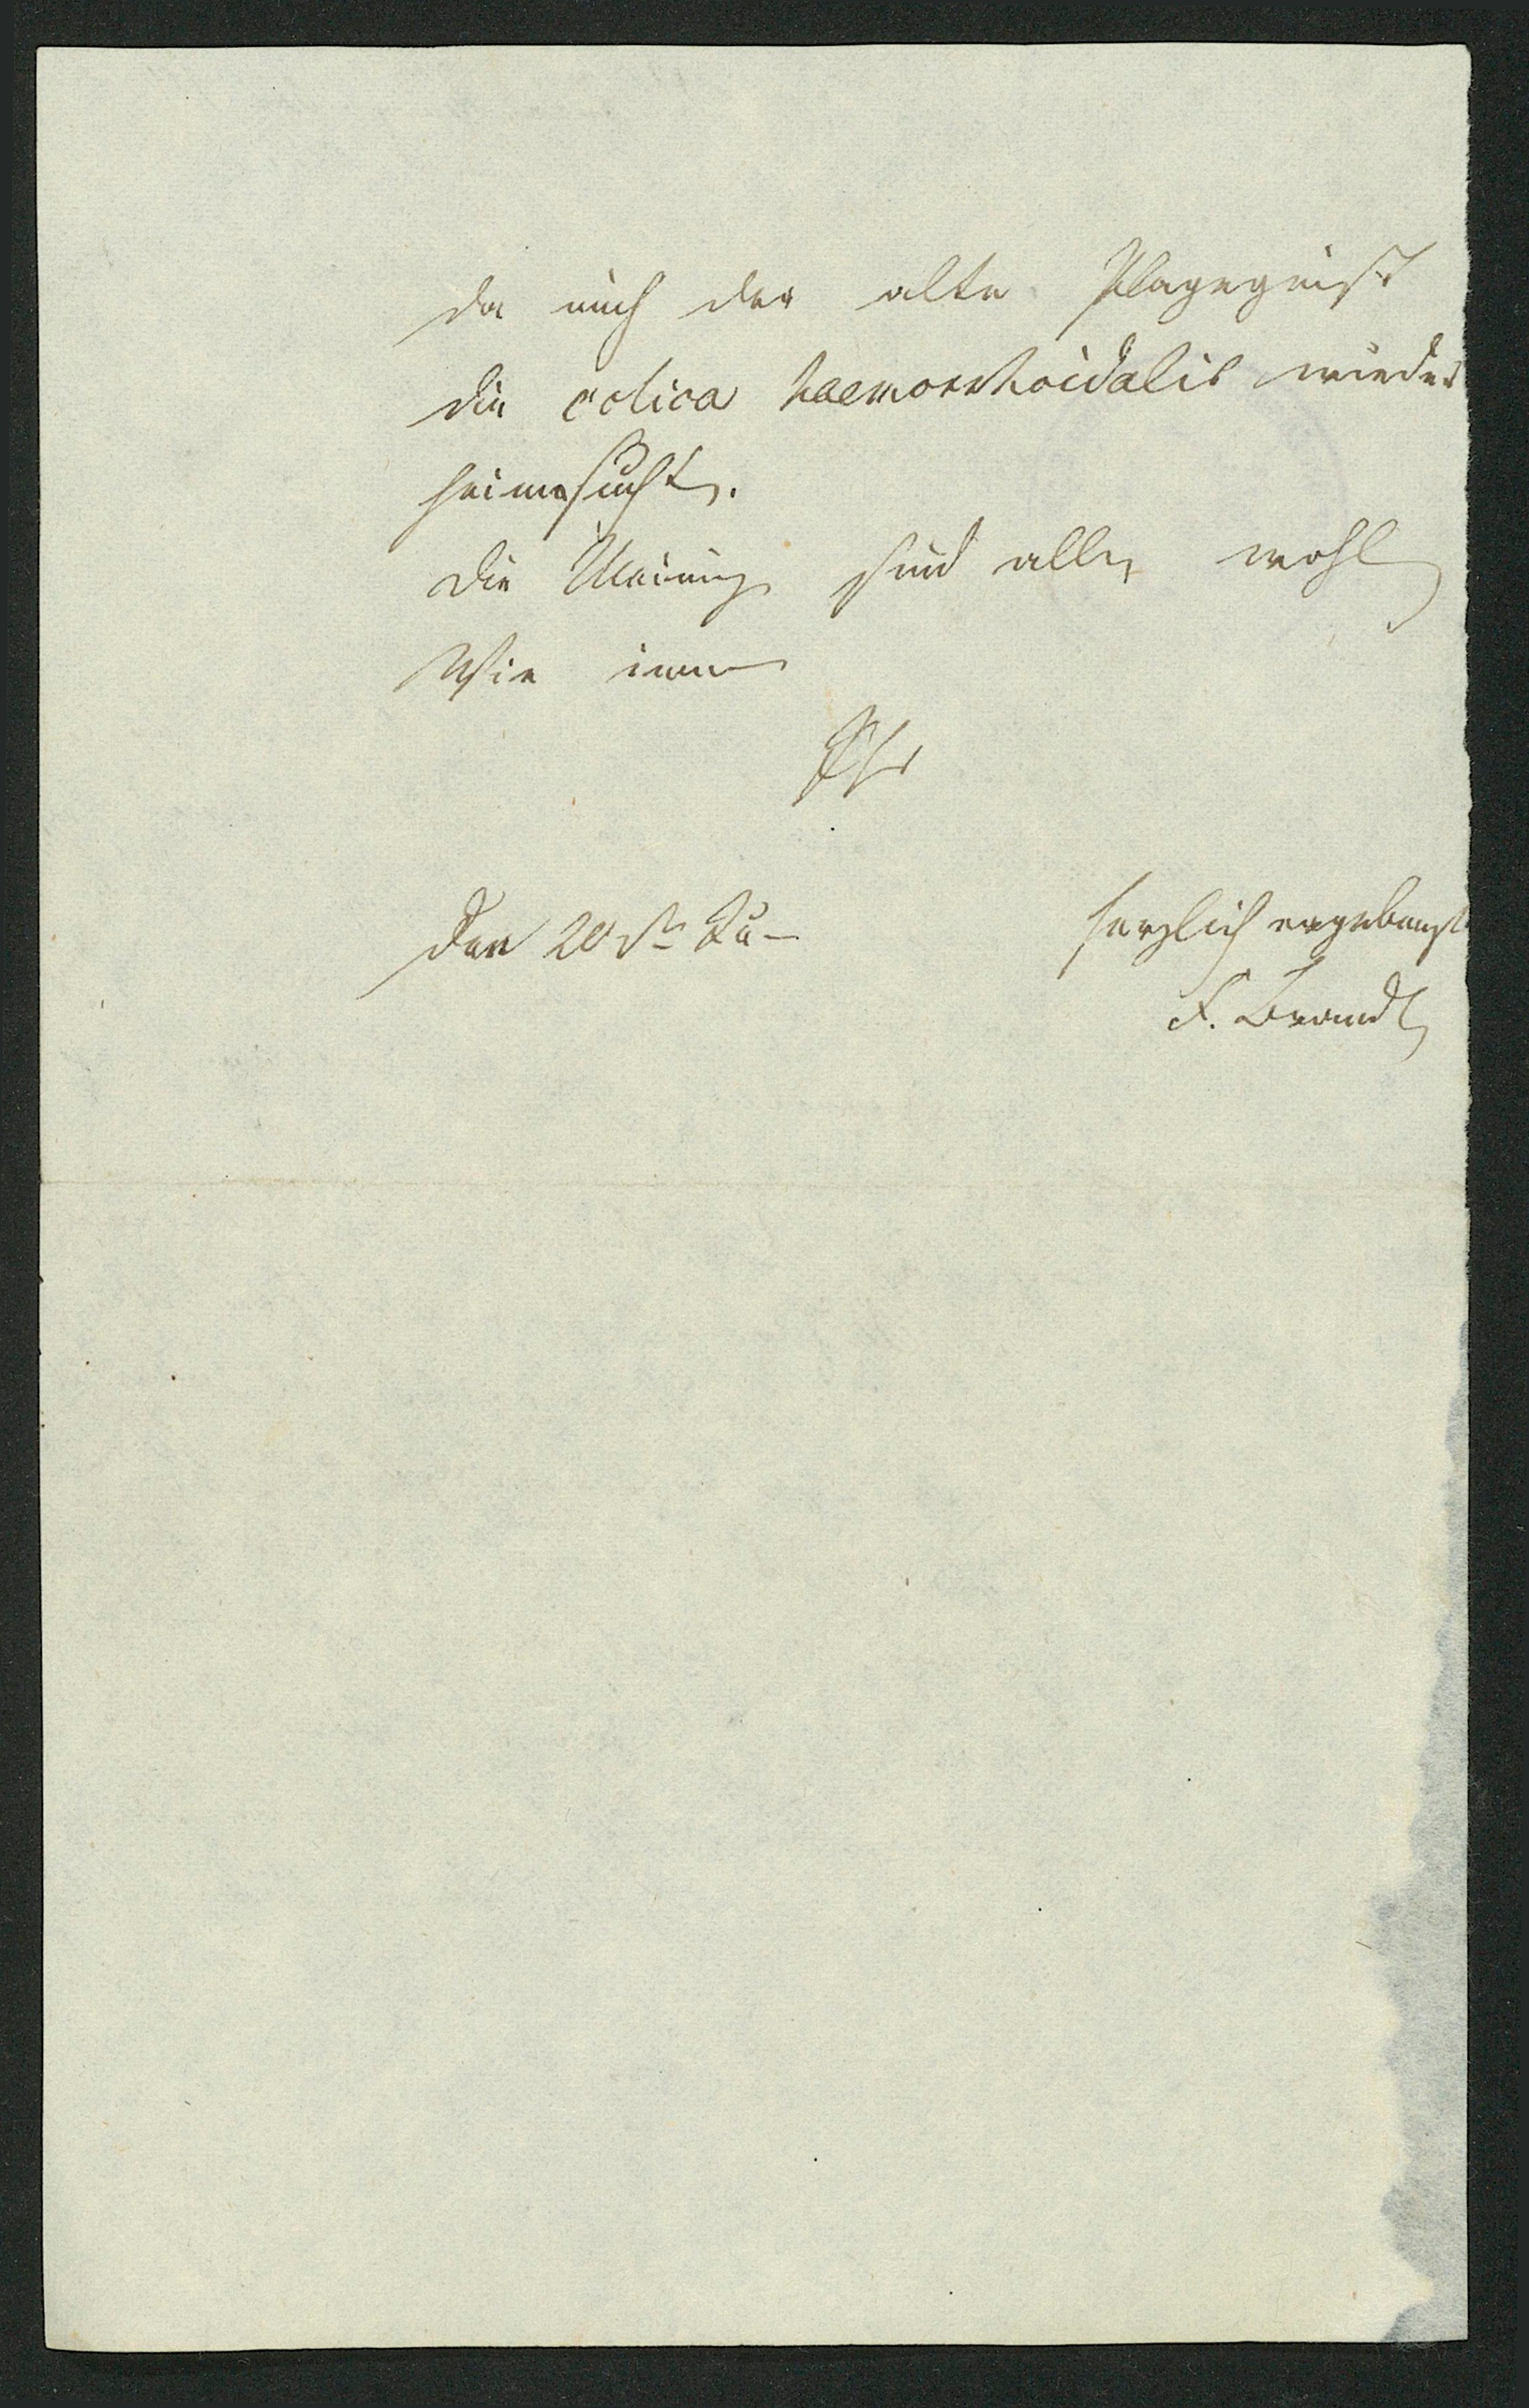 da mich der alte Plagegeist
die colica haemorrhoidalis wieder
heimsucht.
Die Meinig sind alle wohl
Wie immer
Ihr
Den 20st Ju-
herzlich ergebenst
F. Brandt